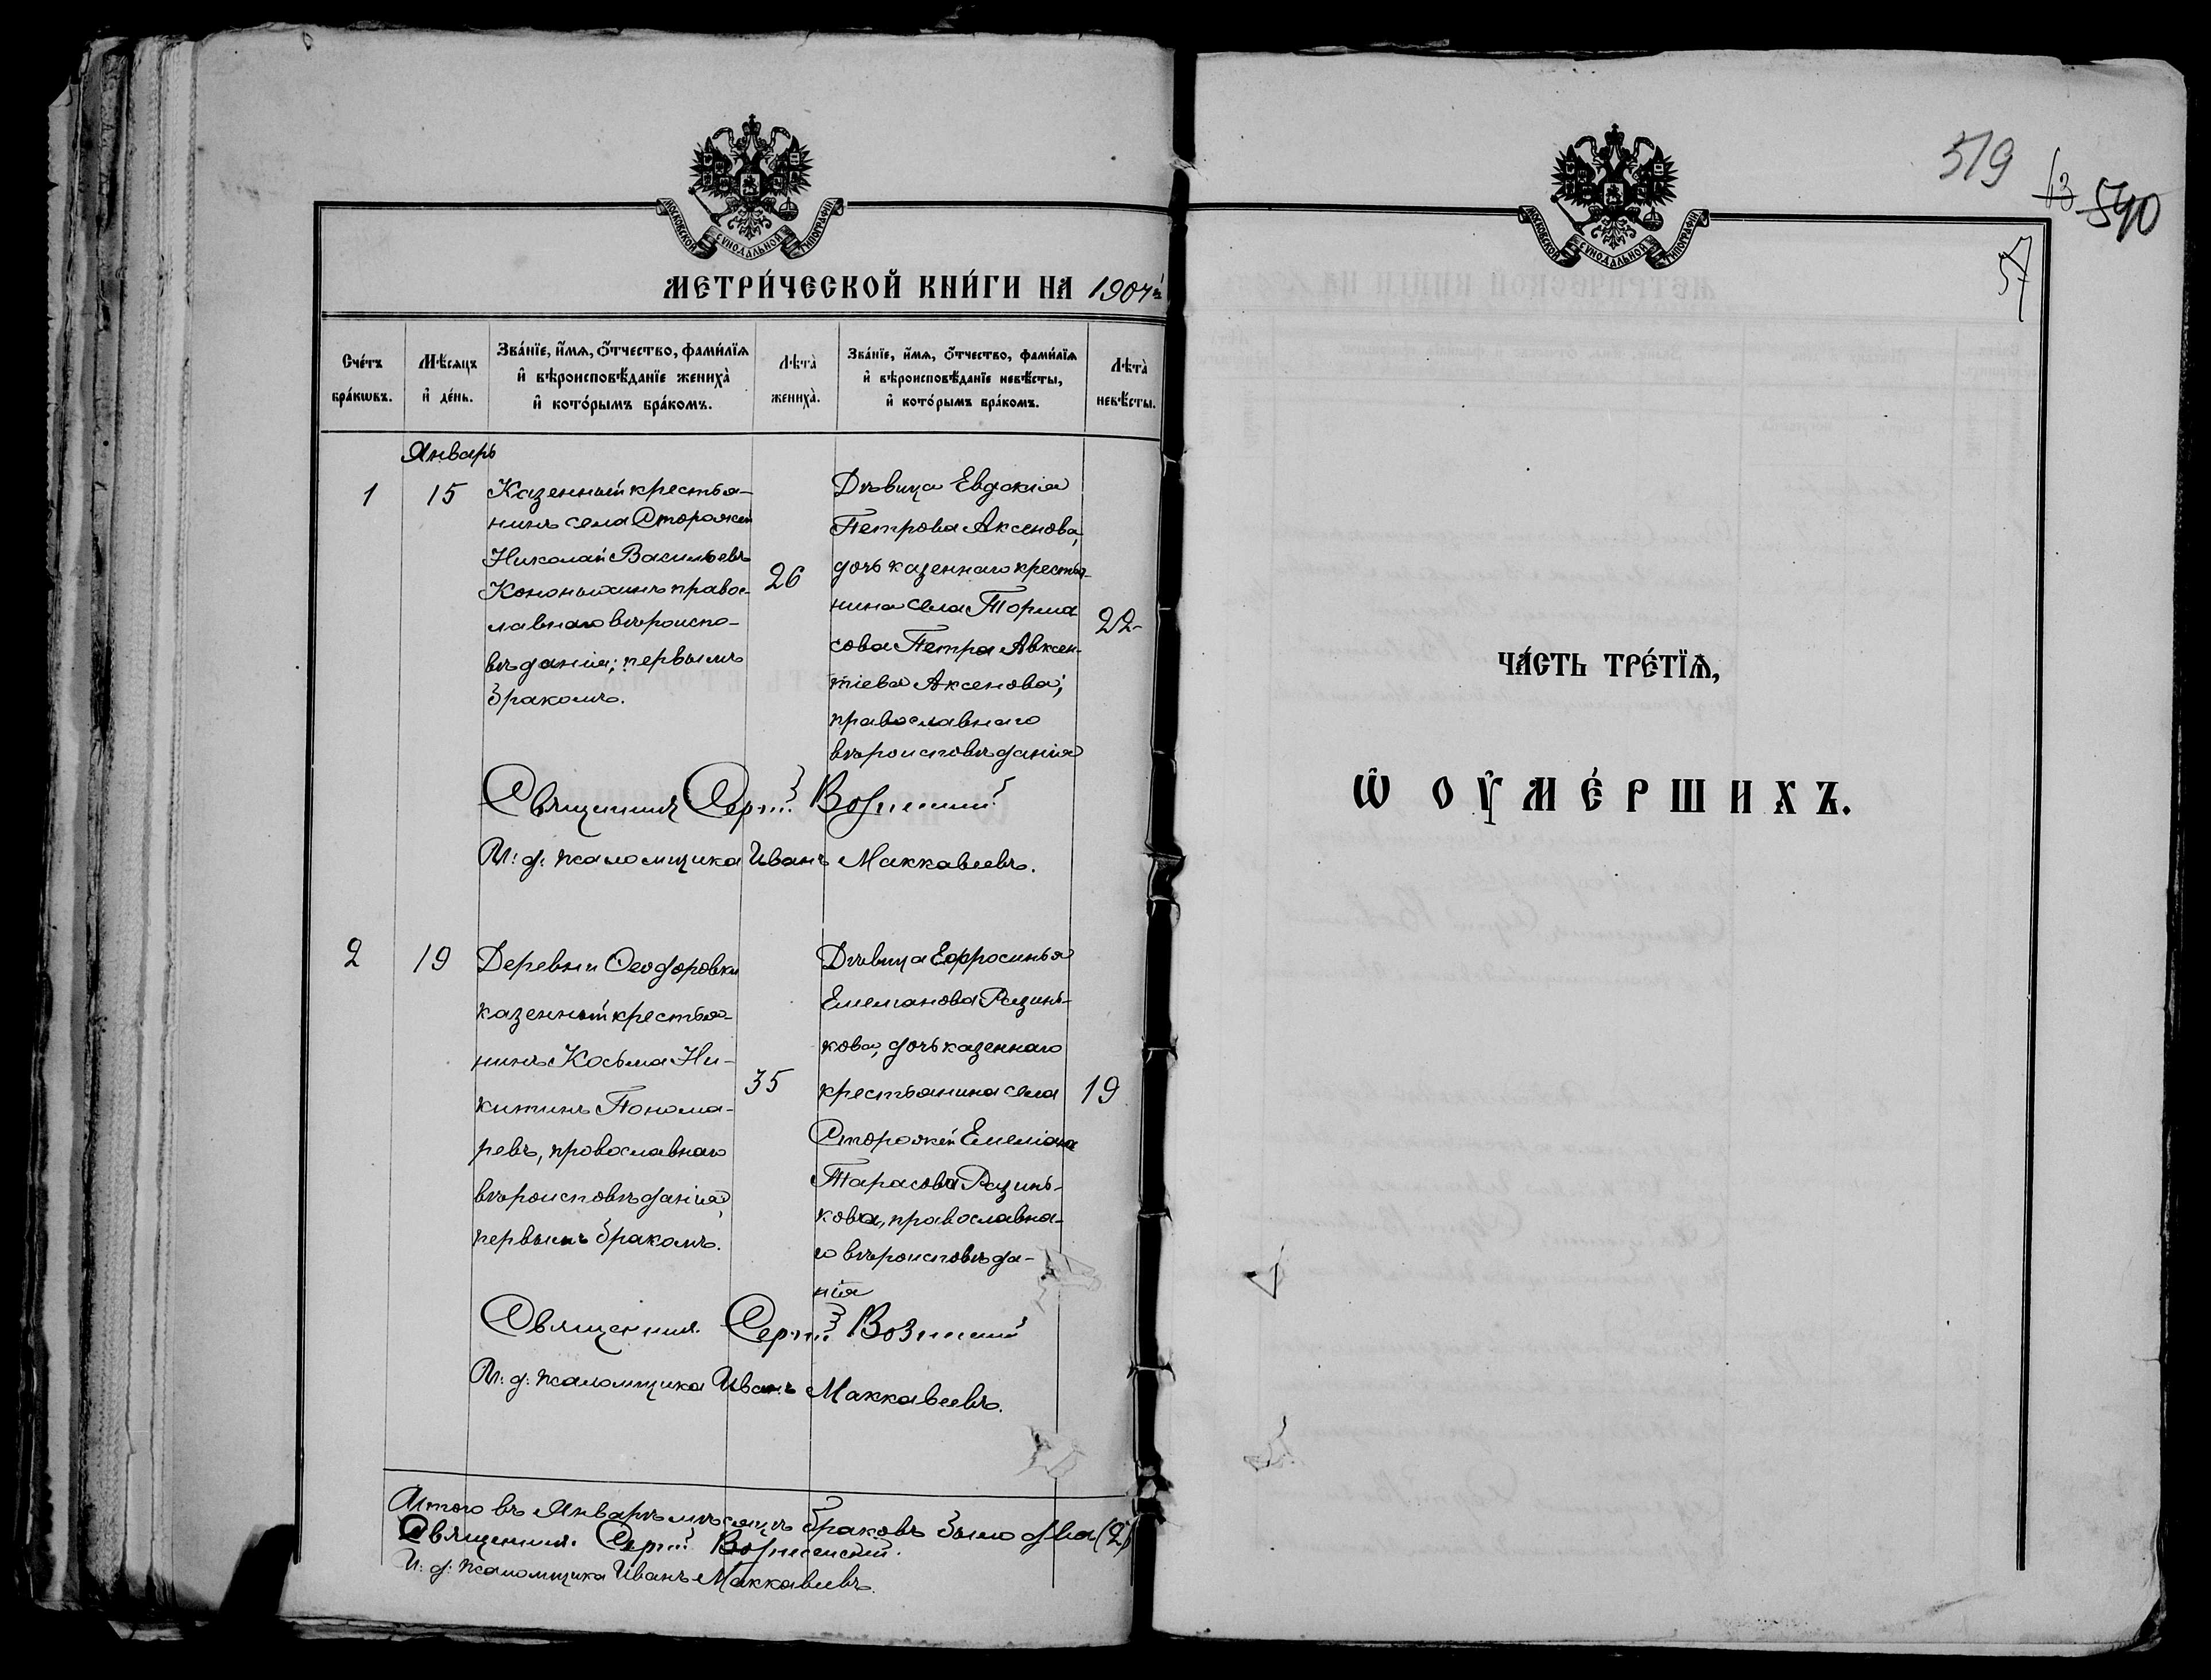 МОСКОВСКОЙ СУНОДАЛЬНОЙ ТИПОГРАФІИ
МЕТРИ́ЧЕСКОЙ КНИ́ГИ НА 1904 й
Сче́тъ бра́кѡвъ.
Мѣ́сяцъ и҆ де́нь.
Зва́нїе, и҆́мѧ, ѻ҆́тчество, фами́лїѧ
и҆ вѣроисповѣ́данїе жениха̀
и҆ кото́рымъ бра́комъ.
Лѣта̀ жениха̀.
Зва́нїе, и҆́мѧ, ѻ҆́тчество, фами́лїѧ
и҆ вѣроисповѣ́данїе невѣ́сты,
и҆ кото́рымъ бра́комъ.
Лѣта̀ невѣ́сты.
Январь
1
15
Казенный крестья-
нинъ села Сторожей
Николай Васильевъ
Кононыхинъ правос-
лавнаго вѣроиспо-
вѣданія; первымъ
бракомъ.
26
Дѣвица Евдокія
Петрова Аксенова,
дочь казеннаго крестья-
нина села Торма
сова Петра Авксен-
тіева Аксенова;
православнаго
вѣроисповѣданія
22
Священникъ Сергій Вознесенскій
И: д: псаломщика Иванъ Маккавеевъ.
2
19
Деревни Ѳеодоровки
казенный крестья-
нинъ Косьма Ни-
китинъ Понома-
ревъ, православнаго
вѣроисповѣданія,
первымъ бракомъ.
35
Дѣвица Ефросинья
Емельянова Разинь-
кова, дочь казеннаго
крестьянина села
Сторожей Емеліана
Тарасова Разинь-
кова, православна-
го вѣроисповѣда-
нія
19
Священникъ Сергій Вознесенскій
И: д: псаломщика Иванъ Маккавеевъ.
Итого въ Январѣ мѣсяцѣ браковъ было два (2)
Священникъ Сергій Вознесенскій.
И: д: псаломщика Иванъ Маккавеевъ.
519
43 540
57
МОСКОВСКОЙ СУНОДАЛЬНОЙ ТИПОГРАФІИ
ЧА́СТЬ ТРЕ́ТЇѦ,
Ѡ҆ ОУ҆МЕ́РШИХЪ.